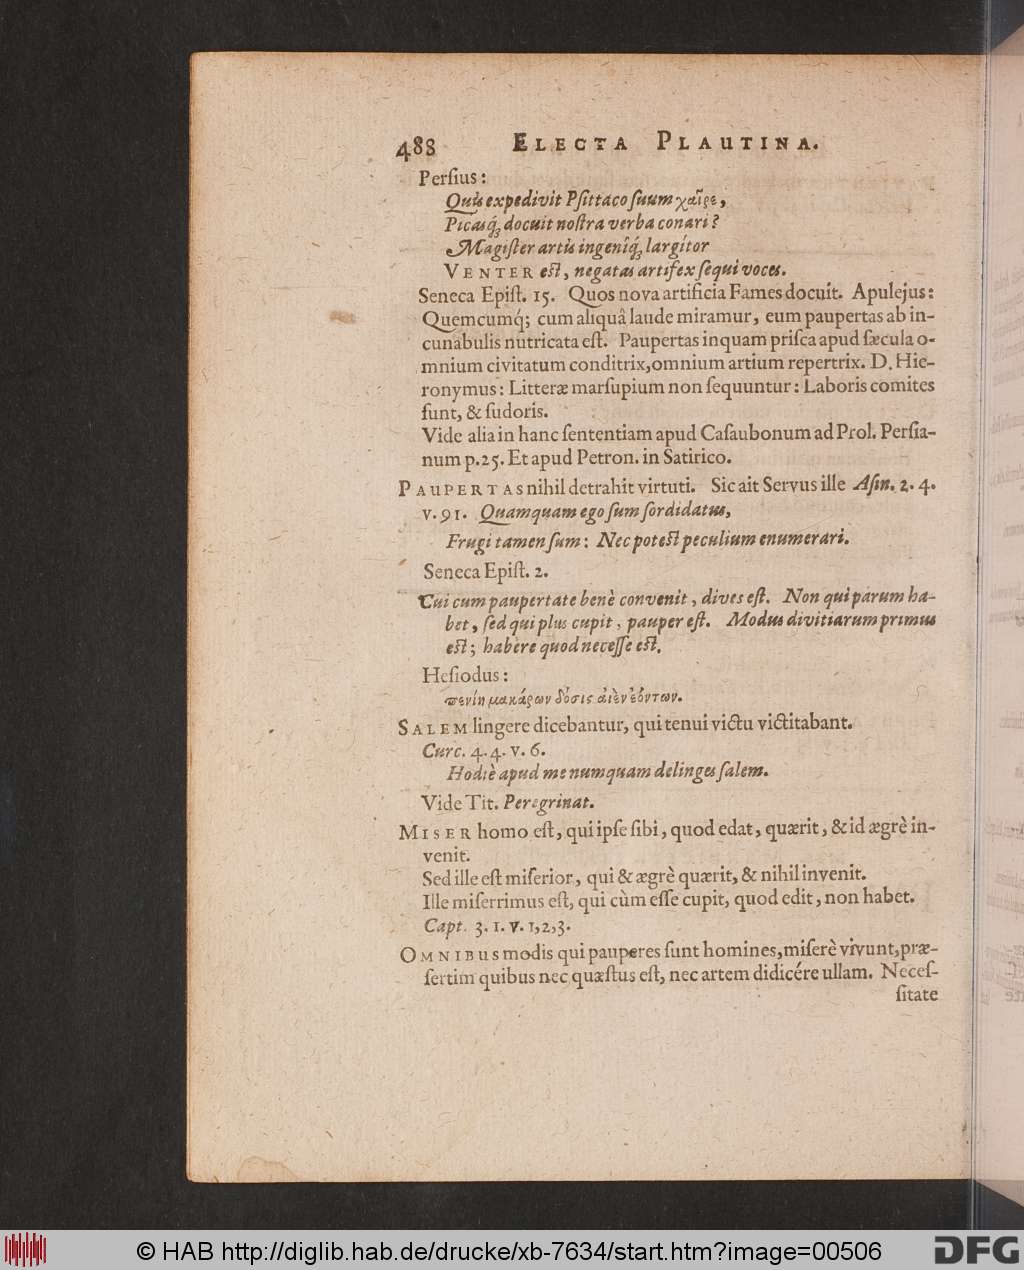 488 ELECTA PLAUTINA.
Perſius:
Quis expedivit Pſittaco ſuum χαῖρε,
Picasq́; docuit noſtra verba conari?
Magiſter artis ingenîq́; largitor
VENTER eſt, negatas artifex ſequi voces.
Seneca Epiſt. 15. Quos nova artificia Fames docuit. Apulejus:
Quemcumq́; cum aliquâ laude miramur, eum paupertas ab in-
cunabulis nutricata eſt. Paupertas inquam priſca apud ſæcula o-
mnium civitatum conditrix, omnium artium repertrix. D. Hie-
ronymus: Litteræ marſupium non ſequuntur: Laboris comites
ſunt, & ſudoris.
Vide alia in hanc ſententiam apud Caſaubonum ad Prol. Perſia-
num p. 25. Et apud Petron. in Satirico.
PAUPERTAS nihil detrahit virtuti. Sic ait Servus ille Aſin. 2. 4.
v. 91. Quamquam ego ſum ſordidatus,
Frugi tamen ſum: Nec poteſt peculium enumerari.
Seneca Epiſt. 2.
Cui cum paupertate benè convenit, dives eſt. Non qui parum ha-
bet, ſed qui plus cupit, pauper eſt. Modus divitiarum primus
eſt; habere quod neceſſe eſt.
Heſiodus:
πενίη μακάρων δόσις αἰὲν ἐόντων.
SALEM lingere dicebantur, qui tenui victu victitabant.
Curc. 4. 4. v. 6.
Hodiè apud me numquam delinges ſalem.
Vide Tit. Peregrinat.
MISER homo eſt, qui ipſe ſibi, quod edat, quærit, & id ægrè in-
venit.
Sed ille eſt miſerior, qui & ægrè quærit, & nihil invenit.
Ille miſerrimus eſt, qui cùm eſſe cupit, quod edit, non habet.
Capt. 3. 1. v. 1, 2, 3.
OMNIBUS modis qui pauperes ſunt homines, miſerè vivunt, præ-
ſertim quibus nec quæſtus eſt, nec artem didicére ullam. Neceſ-
ſitate
© HAB http://diglib.hab.de/drucke/xb-7634/start.htm?image=00506
DFG